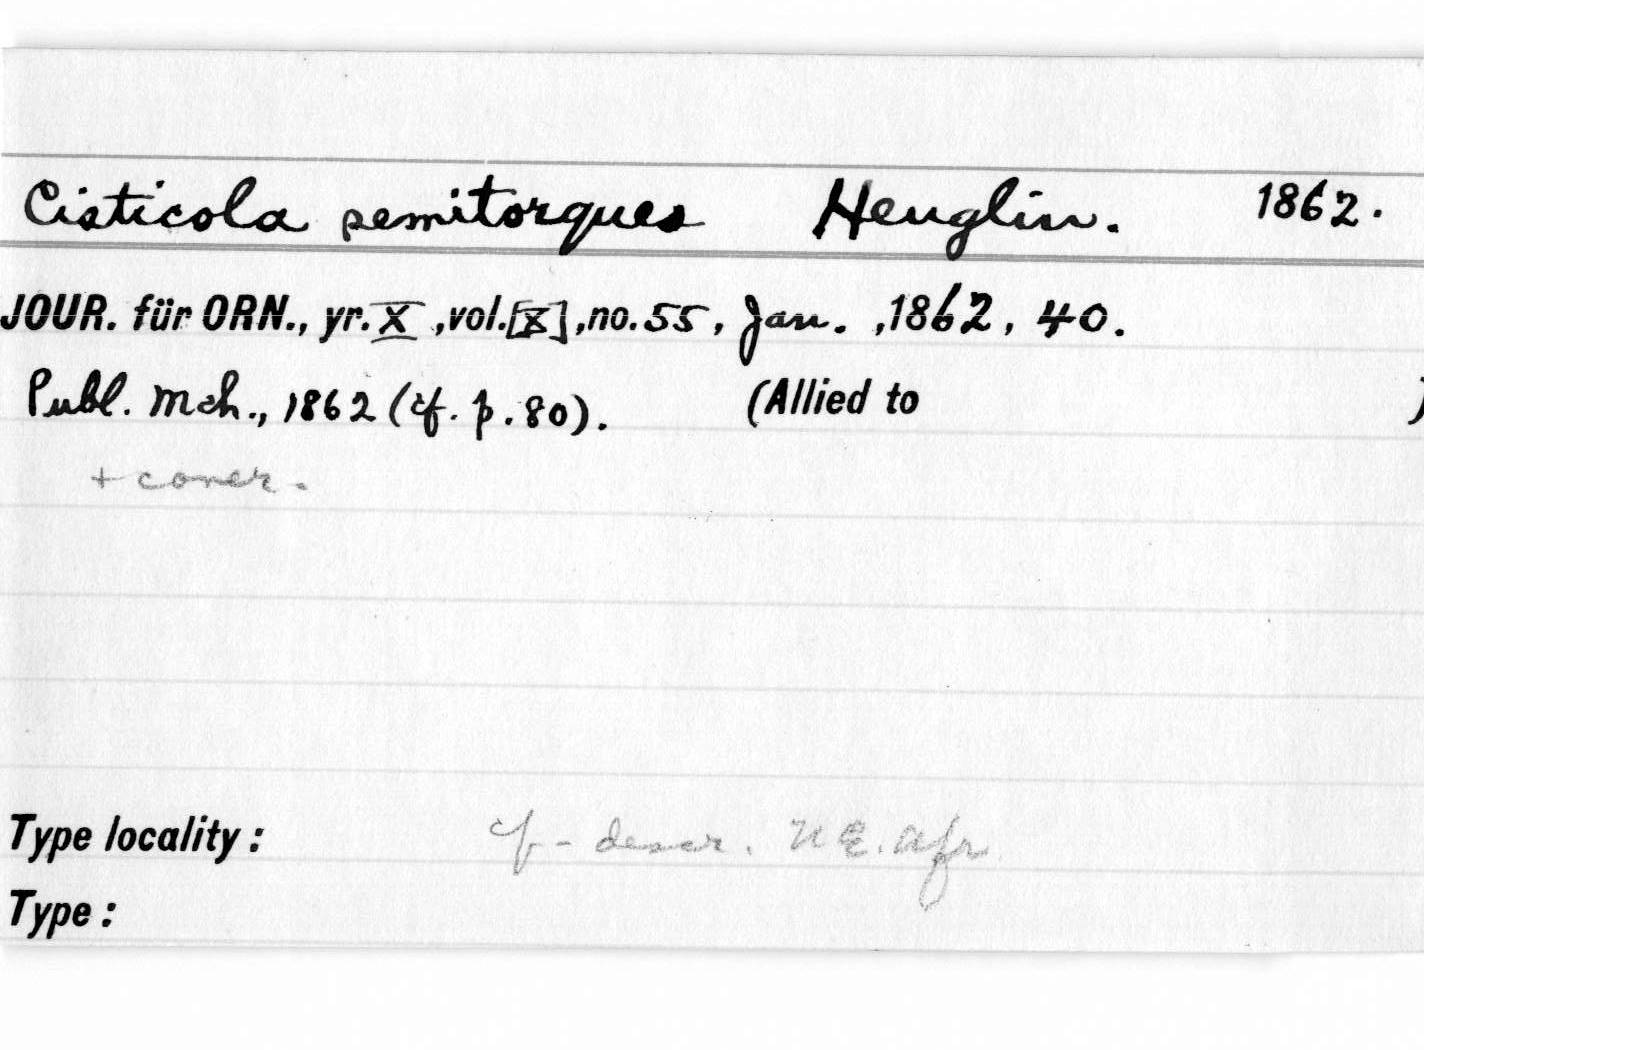 Cisticola semitorques Heuglin. 1862.
JOUR. für ORN., yr. X, vol. [X], no. 55, Jan. , 1862, 40.
Publ. Mch., 1862 (cf. p. 80). (Allied to )
+ cover.
Type locality : cf - descr. NE. Afr
Type :